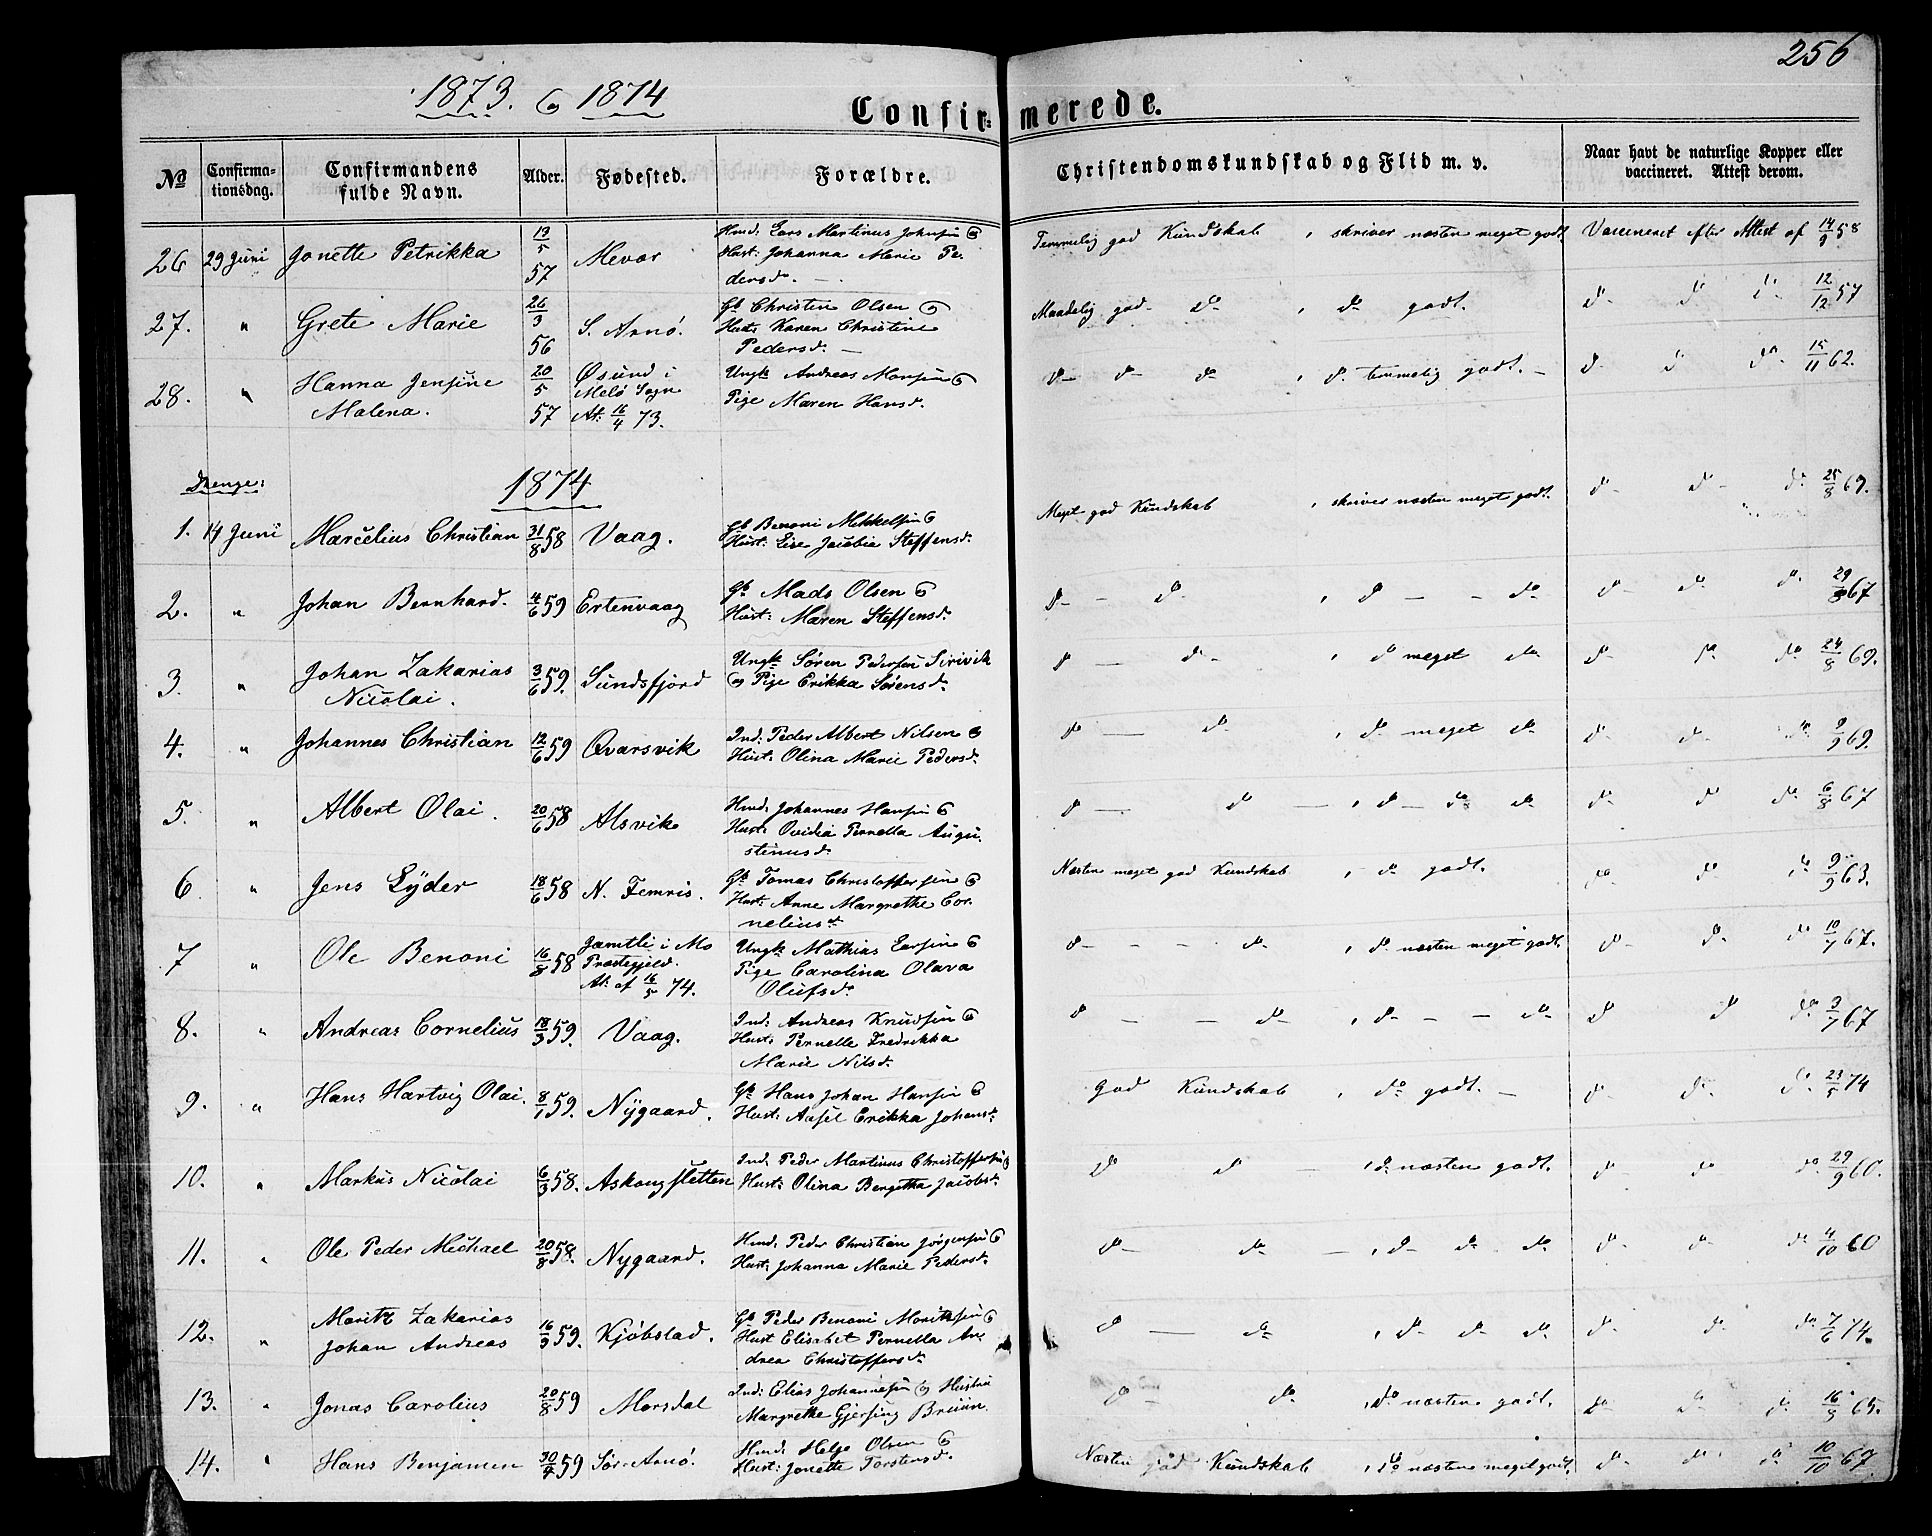 256
1873. og 1874
Confirmerede.
No
Confirmationsdag.
Confirmandens fulde Navn.
Alder.
Fødested.
Forældre.
Christendomskundskab og Flid m. v.
Naar havt de naturlige Kopper eller vaccineret. Attest derom.
26 29 Juni Jonette Petrikka 13/5 57 Mevær Hmd: Lars Martinus Johnsen og Temmelig god Kundskab , skriver næsten meget godt. Vaccineret efter Attest af 14/9 58
Hust: Johanna Marie Pe-
dersd.
27. " Grete Marie 26/3 56 S. Arnø. Gb Christen Olsen og Maadelig god do , do godt. do do do 12/12 57
Hust: Karen Christine
Pedersd.
28. " Hanna Jensine 20/5 57 Øsund i Ungk. Andreas Monsen og do do do , do temmelig godt. do do do 15/11 62.
Malena. Melø Sogn Pige Maren Hansd.
At: 16/4 73.
Drenge: 1874
1. 14 Juni Marcelius Christian 31/8 58 Vaag. Gb Benoni Mikkelsen og Meget god Kundskab , skriver næsten meget godt. do do do 25/8 69.
Hust: Lise Jacobia Steffensd.
2. " Johan Bernhard. 4/6 59 Ertenvaag Gb Mads Olsen og do do , do do do do do 29/8 67
Hust: Maren Steffensd.
3. " Johan Zakarias 3/6 59. Sundsfjord Ungk: Søren Pedersen Sirivik do do , do meget do do do do 24/8 69.
Nicolai. og Pige Erikka Sørensd.
4. " Johannes Christian 12/6 59 Qvarsvik Ind: Peder Albert Nilsen og do do , do meget do do do do 9/9 69.
Hust: Olina Marie Pedersd.
5. " Albert Olai. 20/6 58 Alsvik Hmd: Johannes Hansen og do do , do do do do do do 6/8 67
Hust: Ovidia Pernella Augu-
stinusd.
6. " Jens Lyder 18/6 58 N. Femris. Gb Tomas Christoffersen og Næsten meget god Kundskab , do godt. do do do 9/9 63.
Hust: Anne Margrethe Cor-
neliusd.
7 " Ole Benoni 16/8 58 Jamtli i Mo Ungk: Mathias Larsen og do do , do næsten meget godt. do do do 10/7 67.
Præstegjeld. Pige Carolina Olava
At: af 16/5 74. Olufsd.
8. " Andreas Cornelius 18/3 59. Vaag. Ind: Andreas Knudsen og do do , do do do do do 3/7 67
Hust: Pernelle Fredrikka
Marie Nilsd.
9. " Hans Hartvig Olai. 8/1 59. Nygaard. Gb Hans Johan Hansen og God Kundskab , do godt. do do do 23/5 74
Hust: Aasel Erikka Johansd.
10. " Markus Nicolai 6/3 58. Askougsletten Ind: Peder Martinus Christoffersen og do do , do næsten godt. do do do 29/9 60.
Hust: Olina Bergetha Jacobsd.
11. " Ole Peder Michael 20/8 58. Nygaard. Hmd: Peder Christian Jørgensen og do do , do do do do do do 4/10 60
Hust: Johanna Marie Pedersd.
12. " Moritz Zakarias 16/3 59. Kjøbstad. Gb Peder Benoni Moritzsen og do do , do do do do do do 7/6 74.
Johan Andreas Hust Elisabet Pernella An-
drea Christoffersd.
13. " Jonas Carolius 20/8 59 Morsdal Ind: Elias Johannesen og Hustru do do , do næsten godt. do do do 16/9 65.
Margrethe Gjersing Bruun
14. " Hans Benjamen 30/4 59 Sør-Arnø. Hmd: Helge Olsen og Næsten god Kundskab , do næsten meget godt. do do do 10/10 67
Hust: Jonette Torstensd.